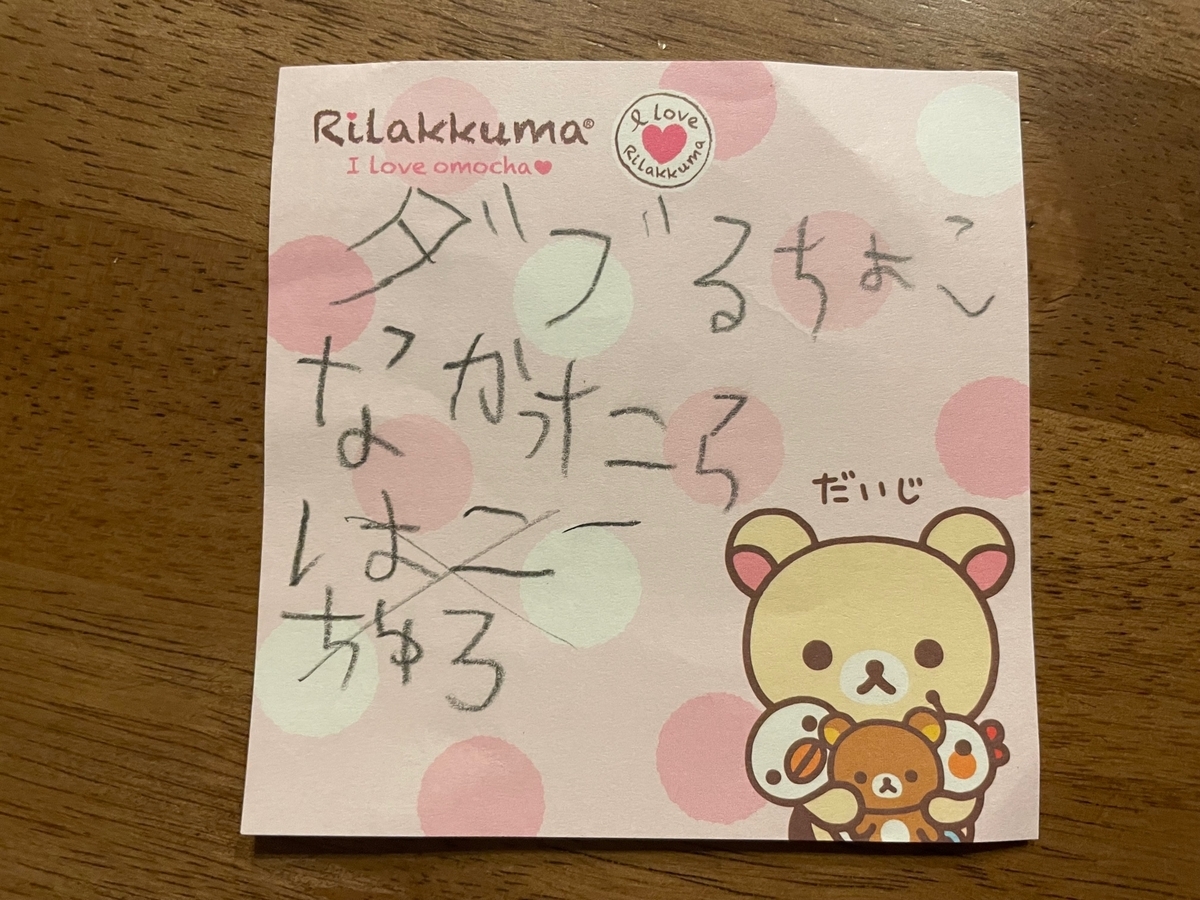 Rilakkuma®
I love omocha
I love Rilakkuma
ダブるちょこ
ながったころ
はこー
ちゅろ
だいじ